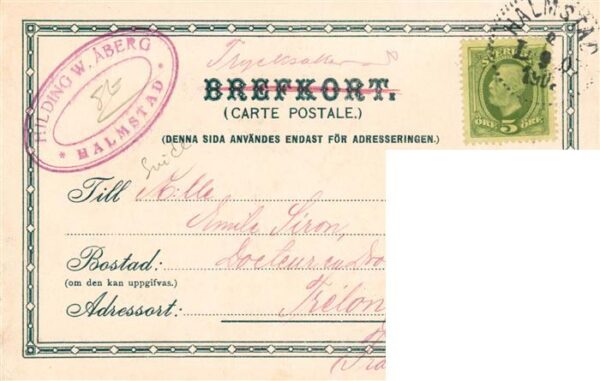 HILDING W. ÅBERG
* HALMSTAD *
Trycksaker
BREFKORT.
(CARTE POSTALE.)
(DENNA SIDA ANVÄNDES ENDAST FÖR ADRESSERINGEN.)
HALMSTAD
SVERIGE
ÖRE 5 ÖRE
Till M:lle
Siron,
Bostad: Docteur en
(om den kan uppgifvas.)
Adressort: Trélon